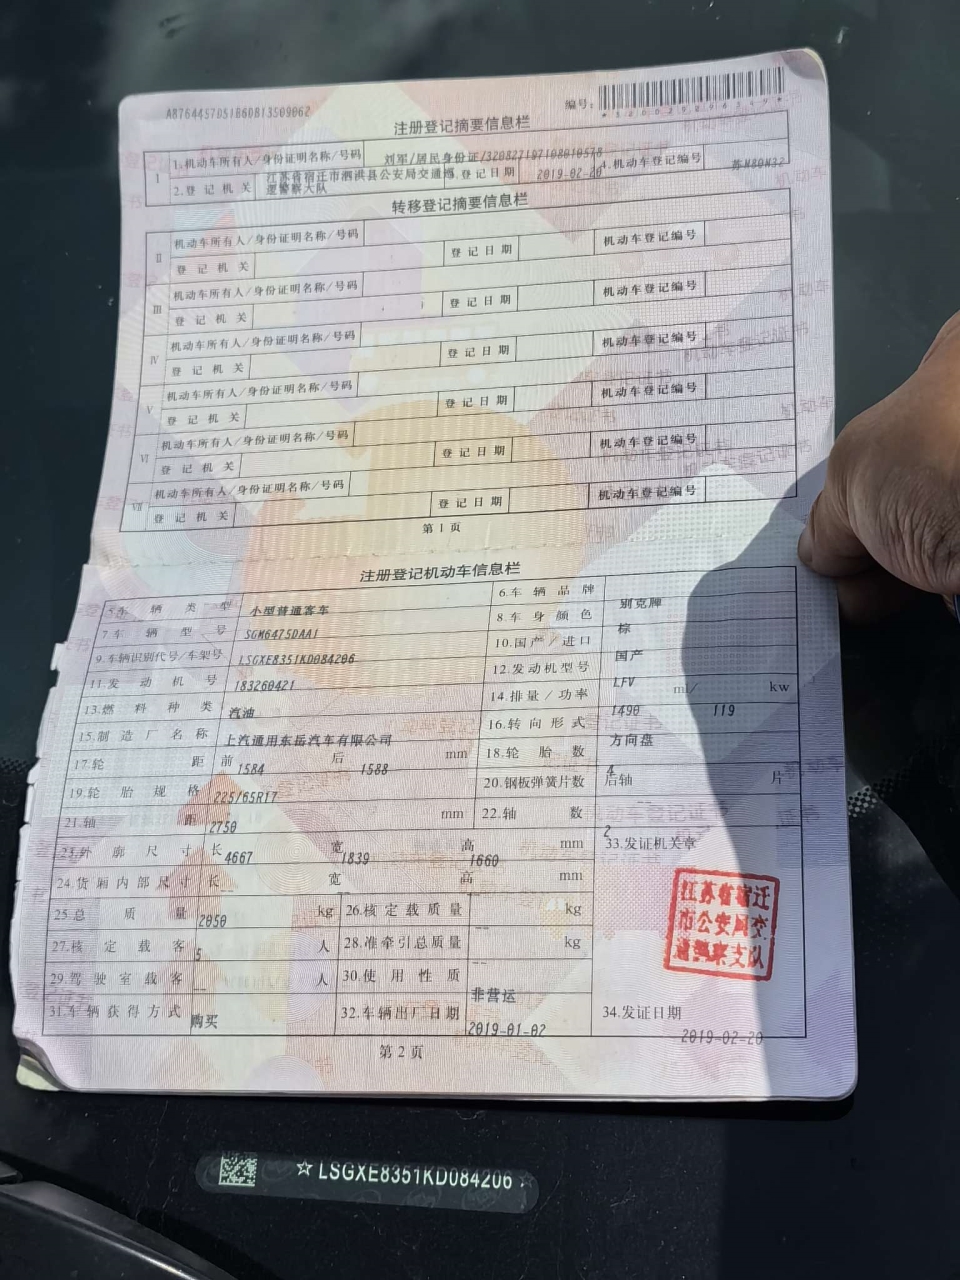 A8764457051B60B13509062
编号:
注册登记摘要信息栏
1 1.机动车所有人/身份证明名称/号码 刘军/居民身份证/320827197108010578
2.登记机关 江苏省宿迁市泗洪县公安局交通巡逻警察大队 3.登记日期 2019-02-20 4.机动车登记编号 苏N80N32
转移登记摘要信息栏
II 机动车所有人/身份证明名称/号码
登记机关 登记日期 机动车登记编号
III 机动车所有人/身份证明名称/号码
登记机关 登记日期 机动车登记编号
IV 机动车所有人/身份证明名称/号码
登记机关 登记日期 机动车登记编号
V 机动车所有人/身份证明名称/号码
登记机关 登记日期 机动车登记编号
VI 机动车所有人/身份证明名称/号码
登记机关 登记日期 机动车登记编号
VII 机动车所有人/身份证明名称/号码
登记机关 登记日期 机动车登记编号
第1页
注册登记机动车信息栏
5.车辆类型 小型普通客车 6.车辆品牌 别克牌
7.车辆型号 SGM6475DAA1 8.车身颜色 棕
9.车辆识别代号/车架号 LSGXE8351KD084206 10.国产/进口 国产
11.发动机号 183260421 12.发动机型号 LFV
13.燃料种类 汽油 14.排量/功率 1490 ml/ 119 kw
15.制造厂名称 上汽通用东岳汽车有限公司 16.转向形式 方向盘
17.轮距 前 1584 后 1588 mm 18.轮胎数 4
19.轮胎规格 225/65R17 20.钢板弹簧片数 后轴 片
21.轴距 2750 mm 22.轴数 2
23.外廓尺寸 长 4667 宽 1839 高 1660 mm 33.发证机关章
24.货厢内部尺寸 长 宽 高 mm
25.总质量 2050 kg 26.核定载质量 -- kg
27.核定载客 5 人 28.准牵引总质量 -- kg
29.驾驶室载客 -- 人 30.使用性质 非营运
31.车辆获得方式 购买 32.车辆出厂日期 2019-01-02 34.发证日期 2019-02-20
江苏省宿迁
市公安局交
通警察支队
第2页
☆LSGXE8351KD084206☆